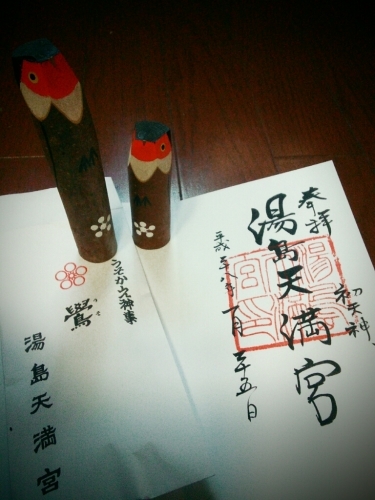 奉拝
湯島天満宮
初天神
平成二十八年一月二十五日
うそかえ神事
鷽
うそ
湯島天満宮